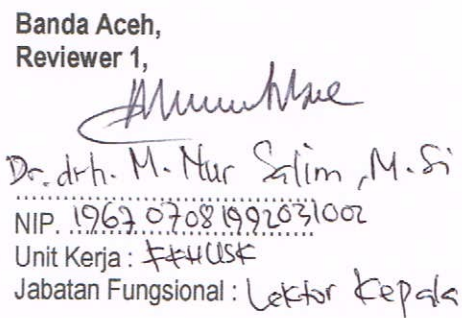 Banda Aceh,
Reviewer 1,
Dr. drh. M. Nur Salim, M.Si
NIP. 196707081992031002
Unit Kerja : FKH USK
Jabatan Fungsional : Lektor Kepala